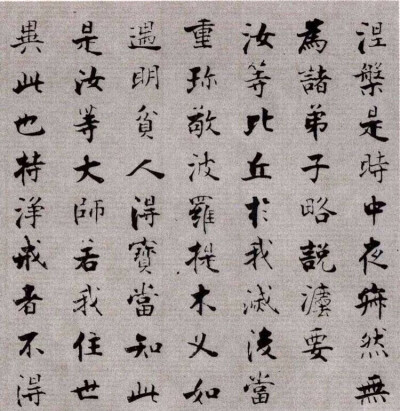 涅槃是時中夜寂然無
為諸弟子略說灋要
汝等比丘於我滅後當
重珍敬波羅提木叉如
遇明貧人得寶當知此
是汝等大師若我住世
異此也持淨戒者不得